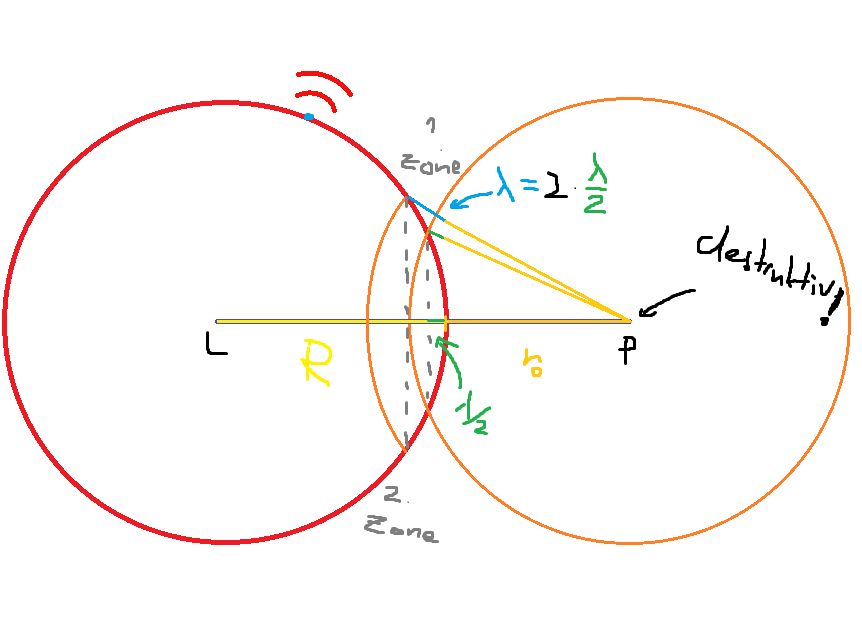 1.
Zone
λ = 2 · λ/2
destruktiv!
L
R
r₀
P
λ/2
2.
Zone